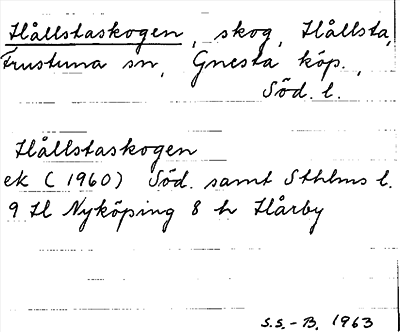 Hållstaskogen, skog, Hållsta,
Frustuna sn, Gnesta köp.,
Söd. l.
Hållstaskogen
ek (1960) Söd. samt Sthlms l.
9 H Nyköping 8 h Hårby
S.S.-B. 1963